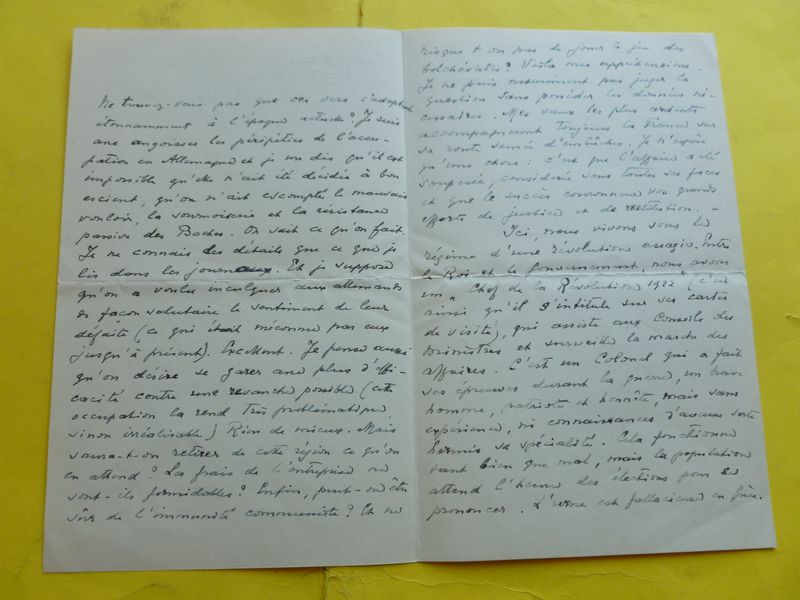 Ne trouvez-vous pas que ces vers s'adaptent
étonnamment à l'époque actuelle? Je suis
avec angoisse les péripéties de l'occu-
pation en Allemagne et je me dis qu'il est
impossible qu'elle n'ait été décidée à bon
escient, qu'on n'ait escompté le mauvais
vouloir, la sournoiserie et la résistance
passive des Boches. On sait ce qu'on fait.
Je ne connais les détails que ce que je
lis dans les journaux. Et je suppose
qu'on a voulu inculquer aux allemands
de façon salutaire le sentiment de leur
défaite (ce qui était méconnu par eux
jusqu'à présent). Excellent. Je pense aussi
qu'on désire se garer avec plus d'effi-
cacité contre une revanche possible (cette
occupation la rend très problématique,
sinon irréalisable) Rien de mieux. Mais
saura-t-on retirer de cette région ce qu'on
en attend? Les frais de l'entreprise ne
sont-ils formidables? Enfin, peut-on être
sûrs de l'immunité communiste? Et ne
risque-t-on pas de jouer le jeu des
bolchévistes? Voilà mes appréhensions.
Je ne puis assurément pas juger la
question sans posséder les données né-
cessaires. Mes vœux les plus ardents
accompagneront toujours la France sur
sa route semée d'embûches. Je n'espère
qu'une chose: c'est que l'affaire a été
soupesée, considérée sous toutes ses faces
et que le succès couronnera vos grands
efforts de justice et de restitution. -
Ici, nous vivons sous le
régime d'une révolution assagie. Entre
le Roi et le Gouvernement, nous avons
un "Chef de la Révolution 1922" (c'est
ainsi qu'il s'intitule sur ses cartes
de visite), qui assiste aux Conseils des
Ministres et surveille la marche des
affaires. C'est un Colonel qui a fait
ses épreuves durant la guerre, un brave
homme, patriote et honnête, mais sans
expérience, ni connaissances d'aucune sorte
hormis sa spécialité. Cela fonctionne
tant bien que mal, mais la population
attend l'heure des élections pour se
prononcer. L'urne est fallacieuse en Grèce.